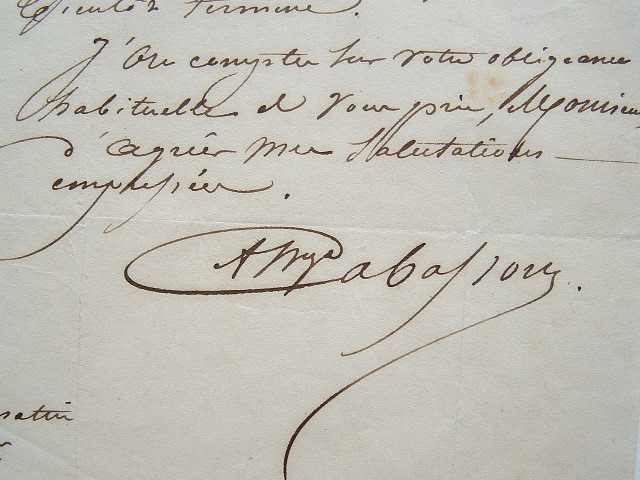 bientôt terminé.
J'ose compter sur votre obligeance
habituelle et vous prie, Monsieur
d'agréer mes salutations
empressées.